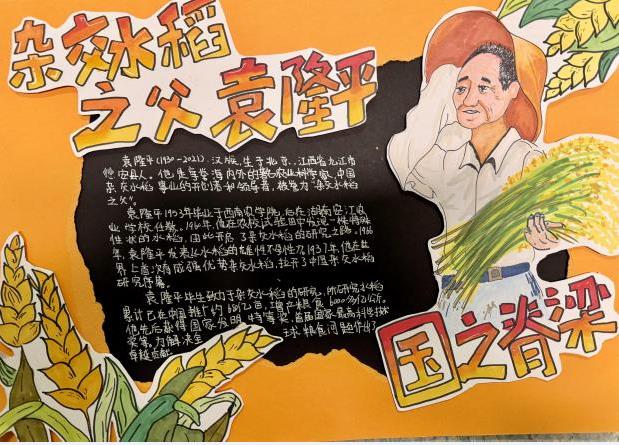 杂交水稻
之父 袁隆平
袁隆平(1930-2021),汉族,生于北京,江西省九江市
德安县人。他是享誉海内外的著名农业科学家,中国
杂交水稻事业的开创者和领导者,被誉为"杂交水稻
之父"。
袁隆平1953年毕业于西南农学院,后在湖南安江农
业学校任教。1961年,他在农校试验田中发现一株特殊
性状的水稻,因此开启了杂交水稻的研究之路。1966
年,袁隆平发表《水稻的雄性不孕性》。1973年,他在世
界上首次育成强优势杂交水稻,拉开了中国杂交水稻
研究序幕。
袁隆平毕生致力于杂交水稻的研究。所研究水稻
累计已在中国推广约 亿亩,增产粮食 亿公斤。
他先后获得国家发明特等奖、首届国家最高科学技术
奖等。为解决全球粮食问题作出了
卓越贡献。
国之脊梁